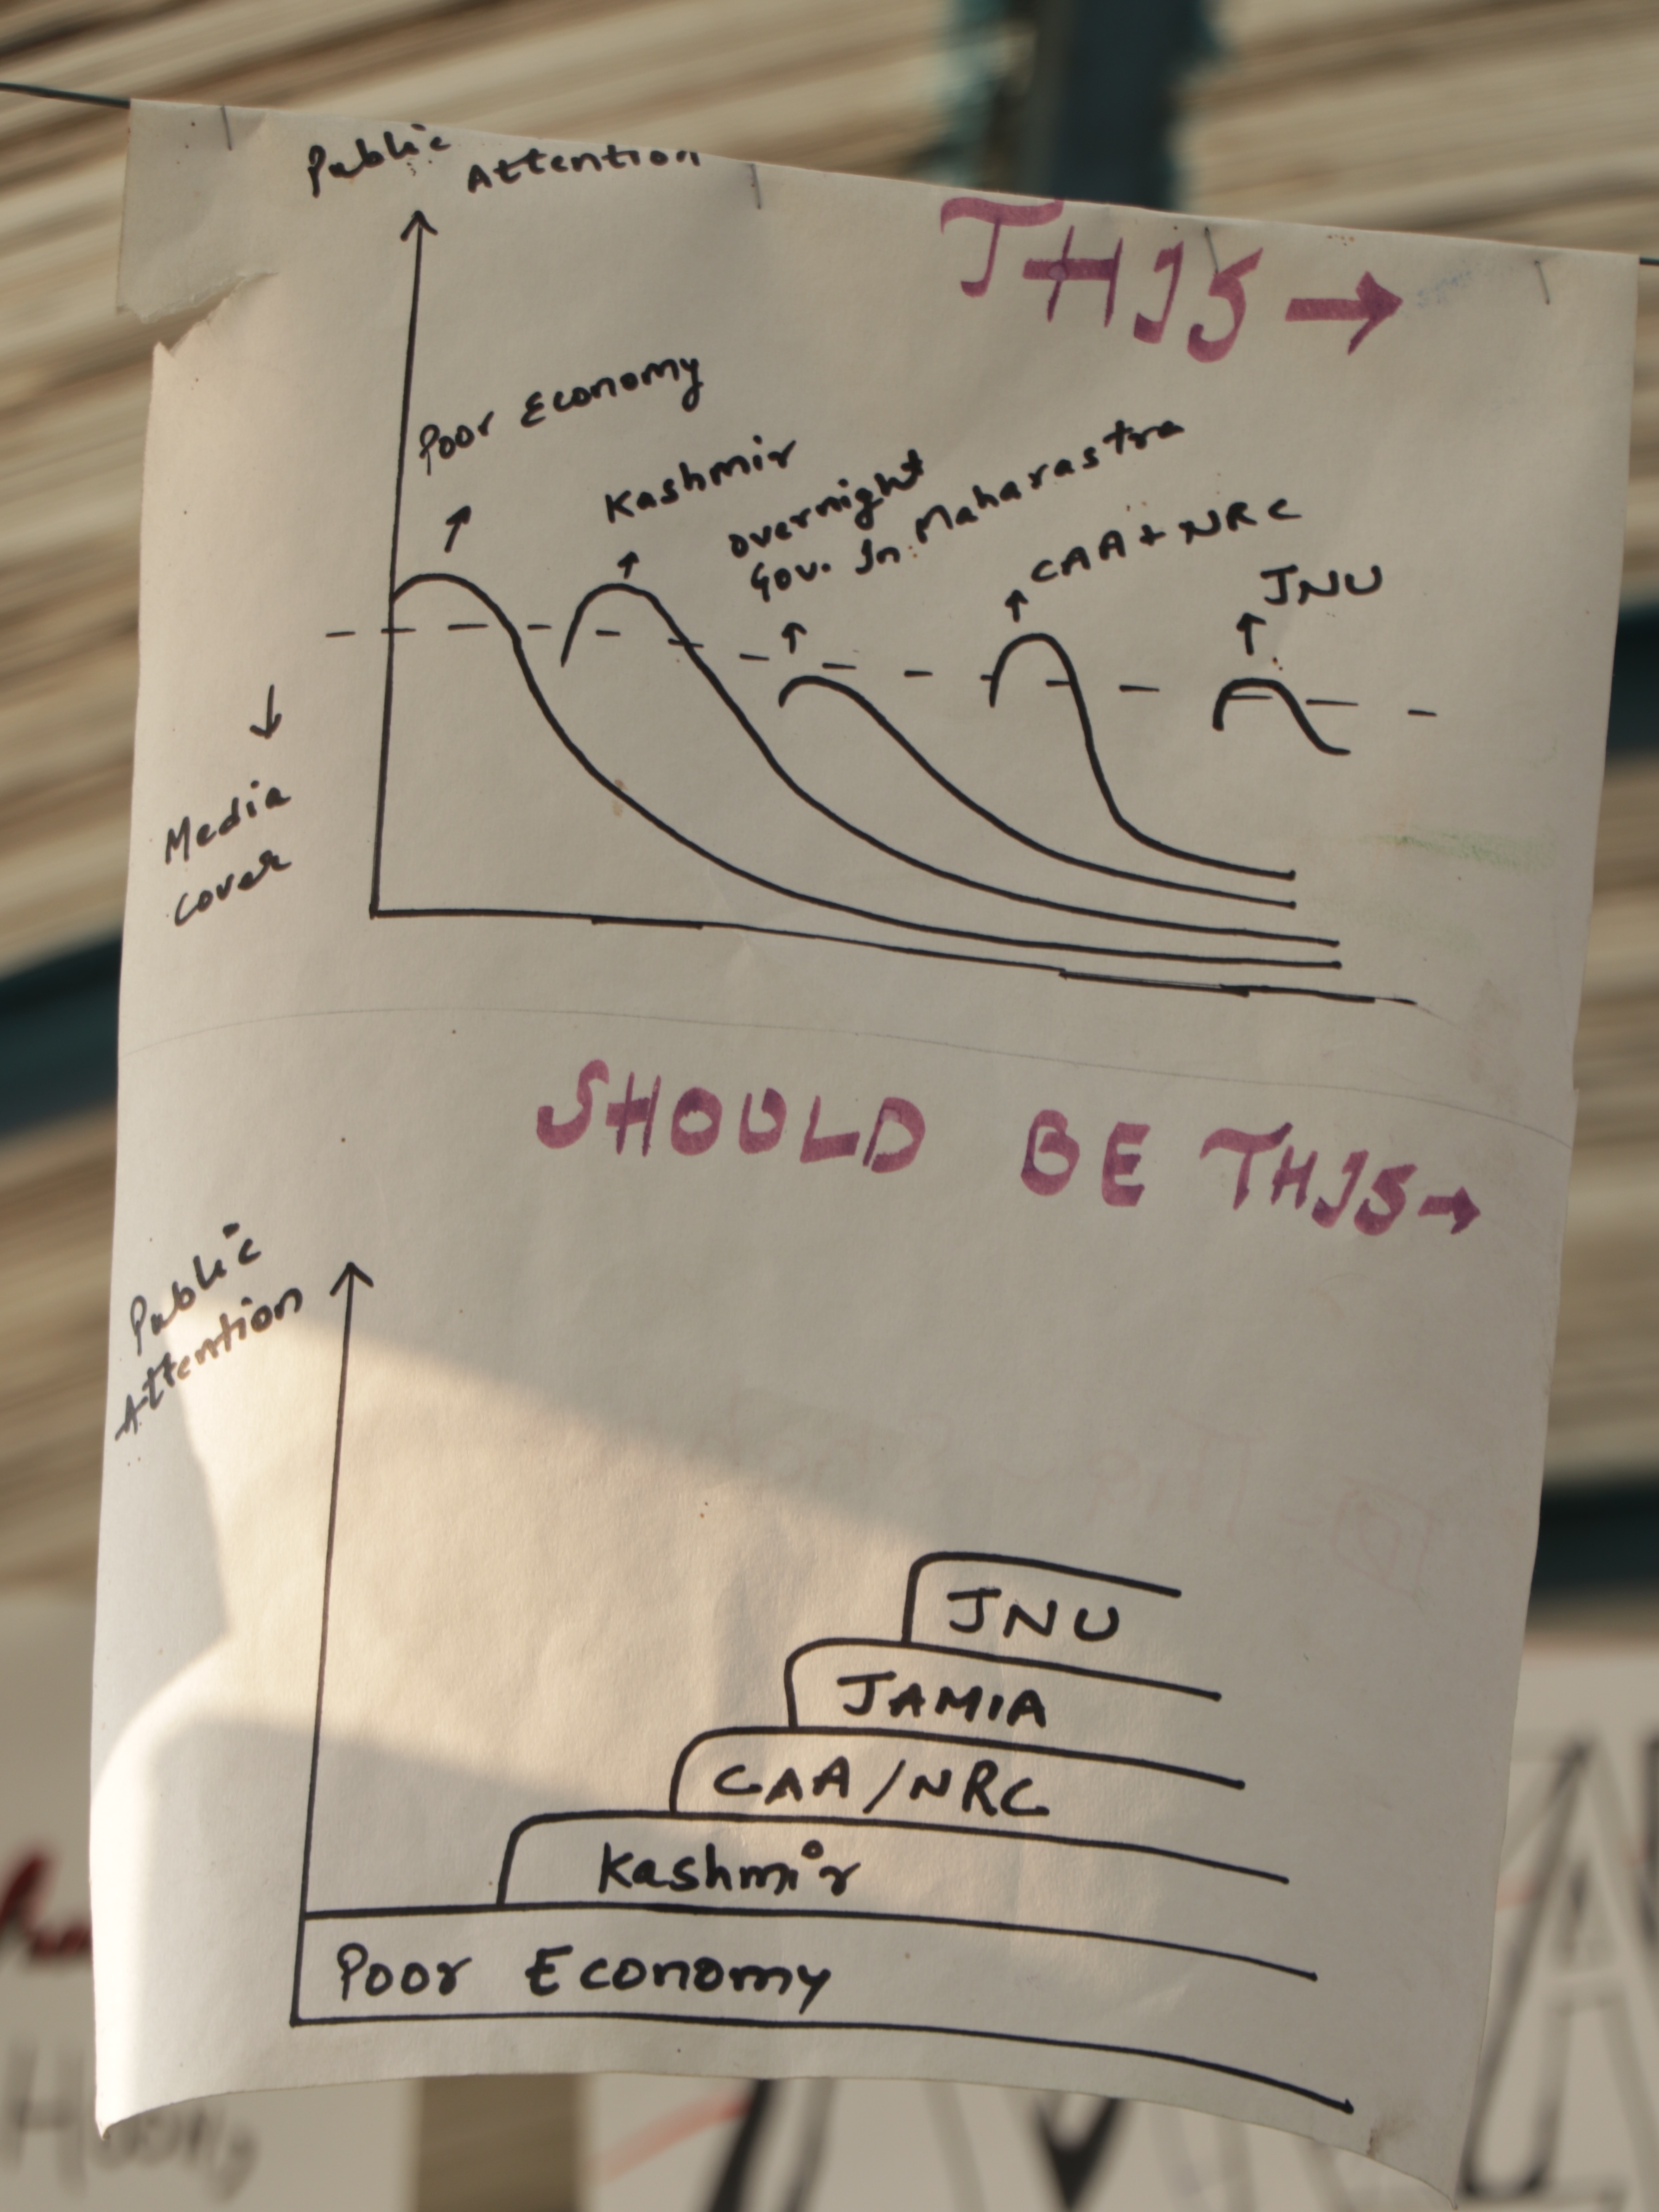 Public Attention
THIS →
Poor Economy
Kashmir
overnight
Gov. In Maharastra
CAA + NRC
JNU
Media
cover
SHOULD BE THIS →
Public
Attention
JNU
JAMIA
CAA/NRC
Kashmir
Poor Economy